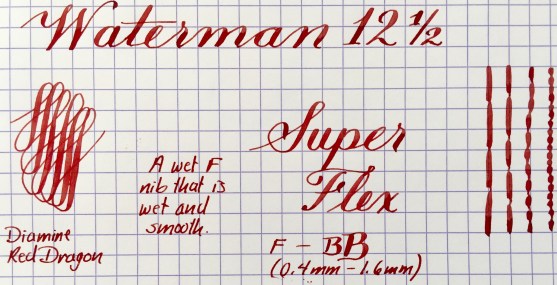 Waterman 12 ½
Super
Flex
A wet F
nib that is
wet and
smooth.
Diamine
Red Dragon
F - BB
(0.4mm - 1.6mm)